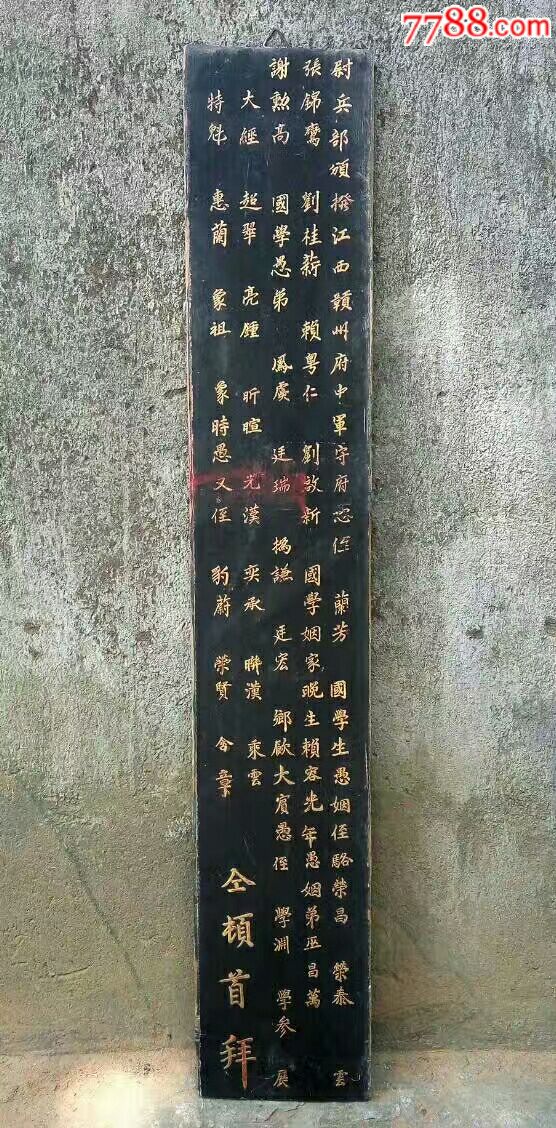 7788.com
尉兵部頒撥江西贛州府中軍守府愚侄 蘭芳 國學生愚姻侄駱榮昌 榮泰 雲
張錦鸞 劉桂薪 賴粵仁 劉啟新 國學姻家晚生賴容光年愚姻弟巫昌萬
謝勲高 國學愚弟 鳳虞 廷瑞 撝謙 廷宏 鄉飲大賓愚侄 學淵 學參 展
大經 超翠 亮鍾 昕暄 光漢 奕承 聯漢 乘雲
特魁 惠蘭 象祖 象時愚又侄 豹蔚 榮賢 含章
仝頓首拜